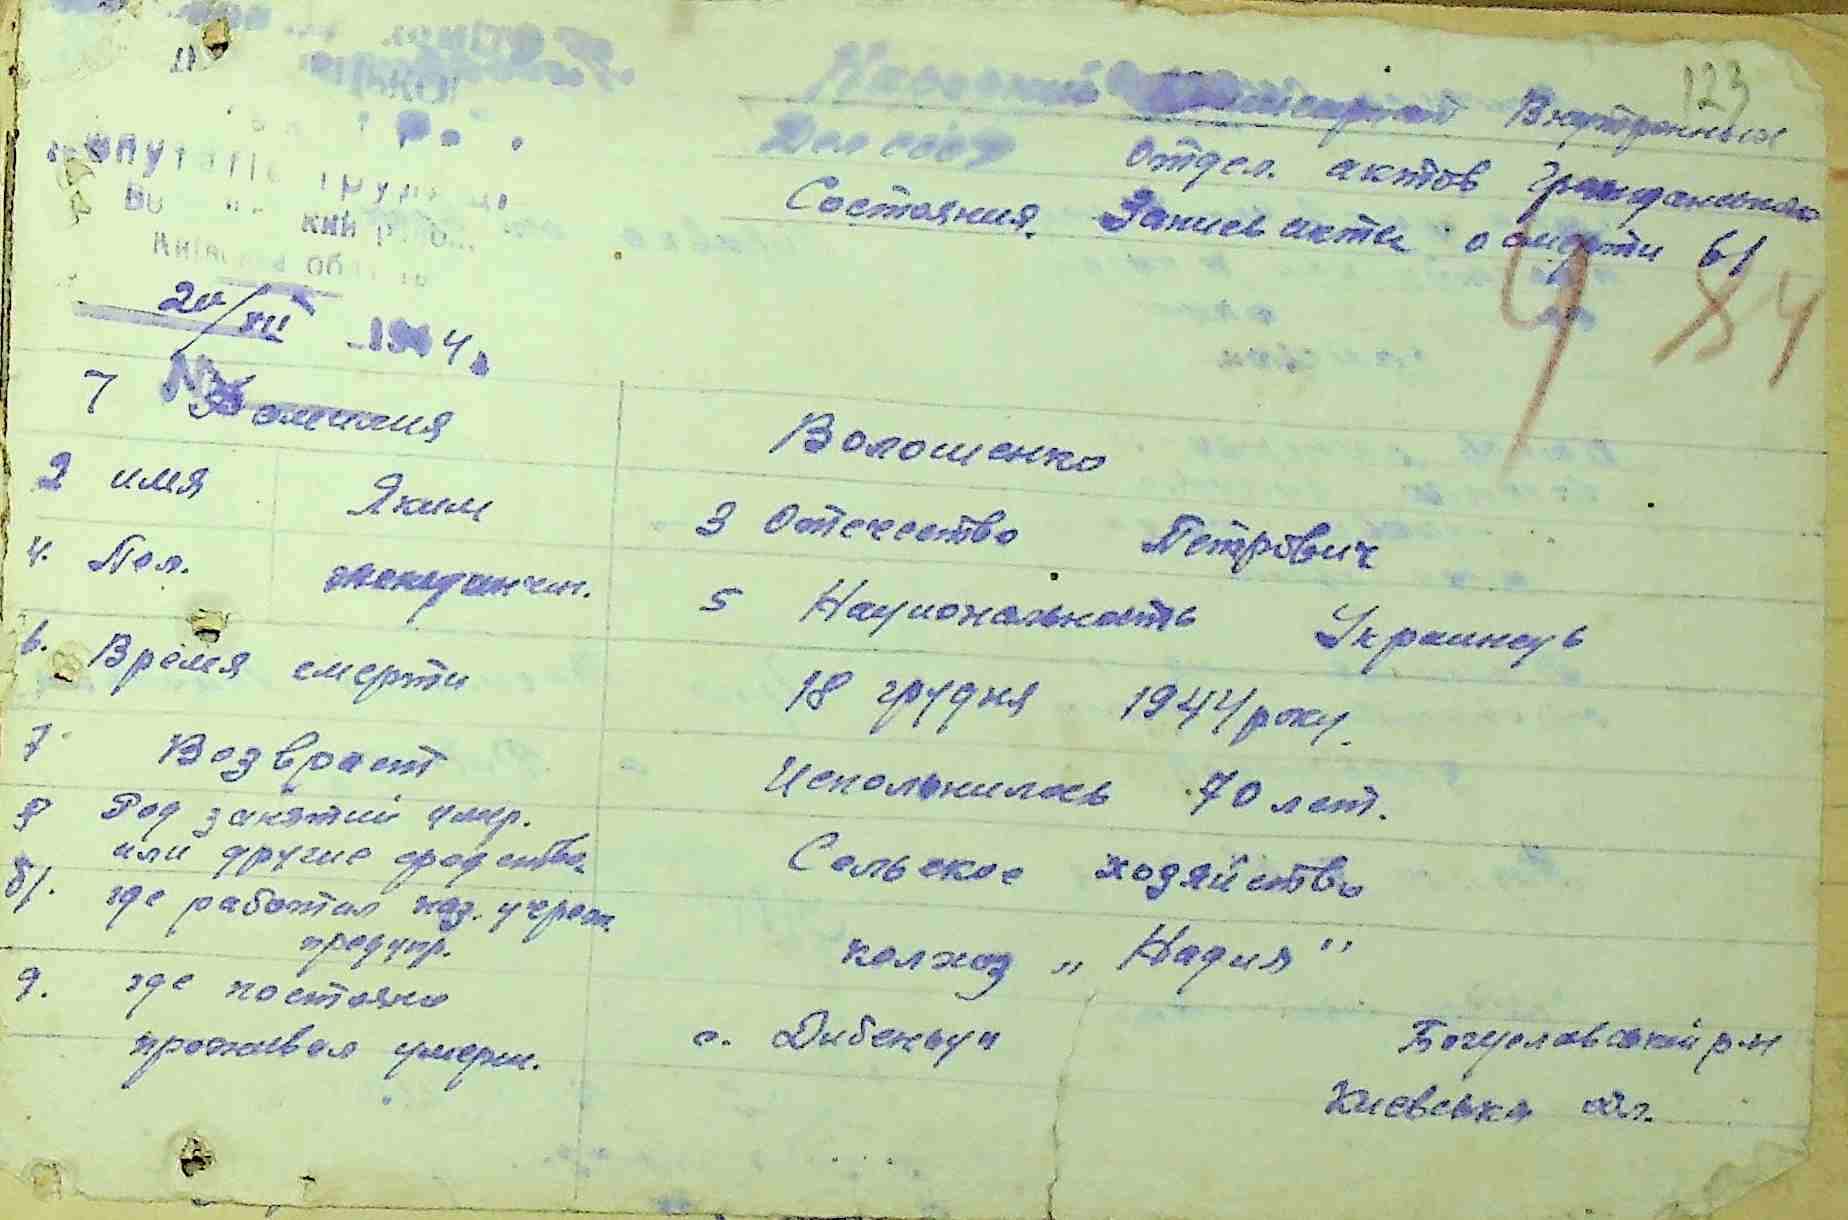 123
Народний Комисариат Внутренних
Дел СССР Отдел. актов Гражданского
Состояния. Запись акта о смерти 61
20/XII 1944.
84
7 Фамилия Волошенко
2 имя Яким 3 Отечество Петрович
4. Пол. 5 Национальность Украинець
6. Время смерти 18 грудня 1944 року.
7. Возвраст Испольнилось 70 лет.
8 Род занятий умер.
или другие средства Сельское ходяйство
б/. где работал наз. учреж.
предпр. колхоз „Надия"
9. где постояно
проживал умерш. с. Дибенци Богуславський р-н
Киевська обл.